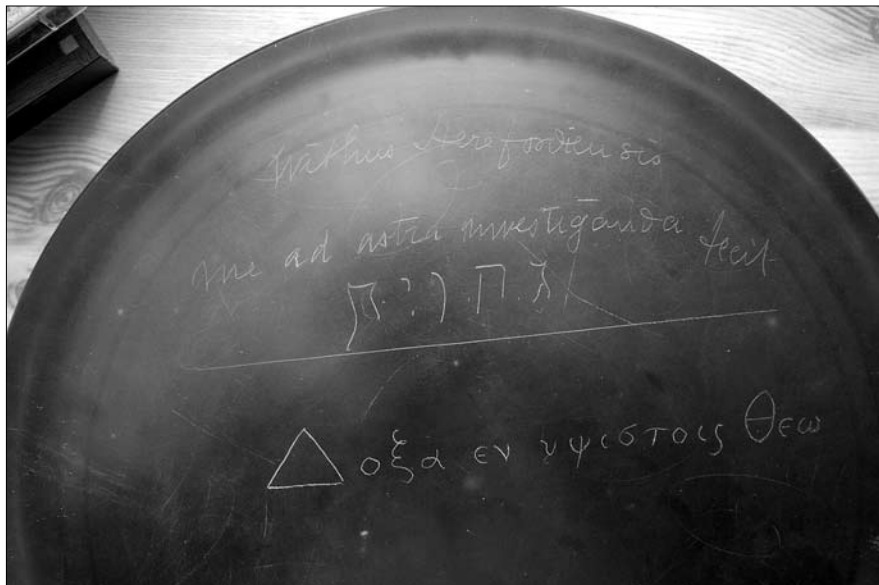 Withus Herefordiensis
me ad astra investiganda fecit
Δοξα εν υψιστοις Θεω